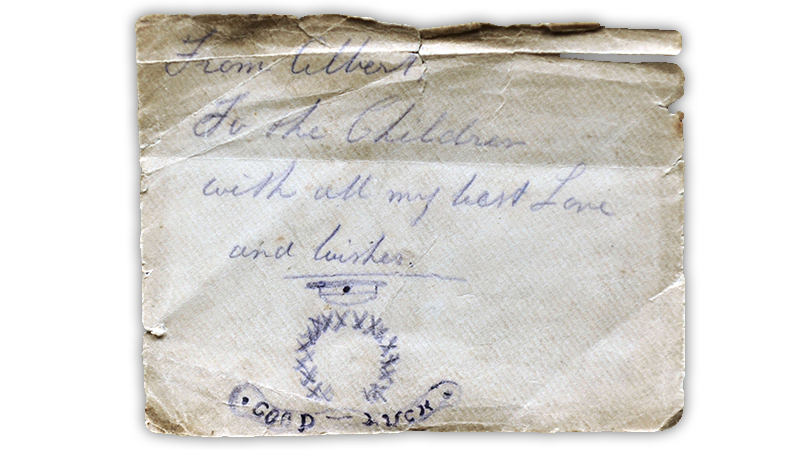 From Albert
To the Children
with all my best Love
and wishes.
XXXXXXXXXXXXXXX
GOOD — LUCK